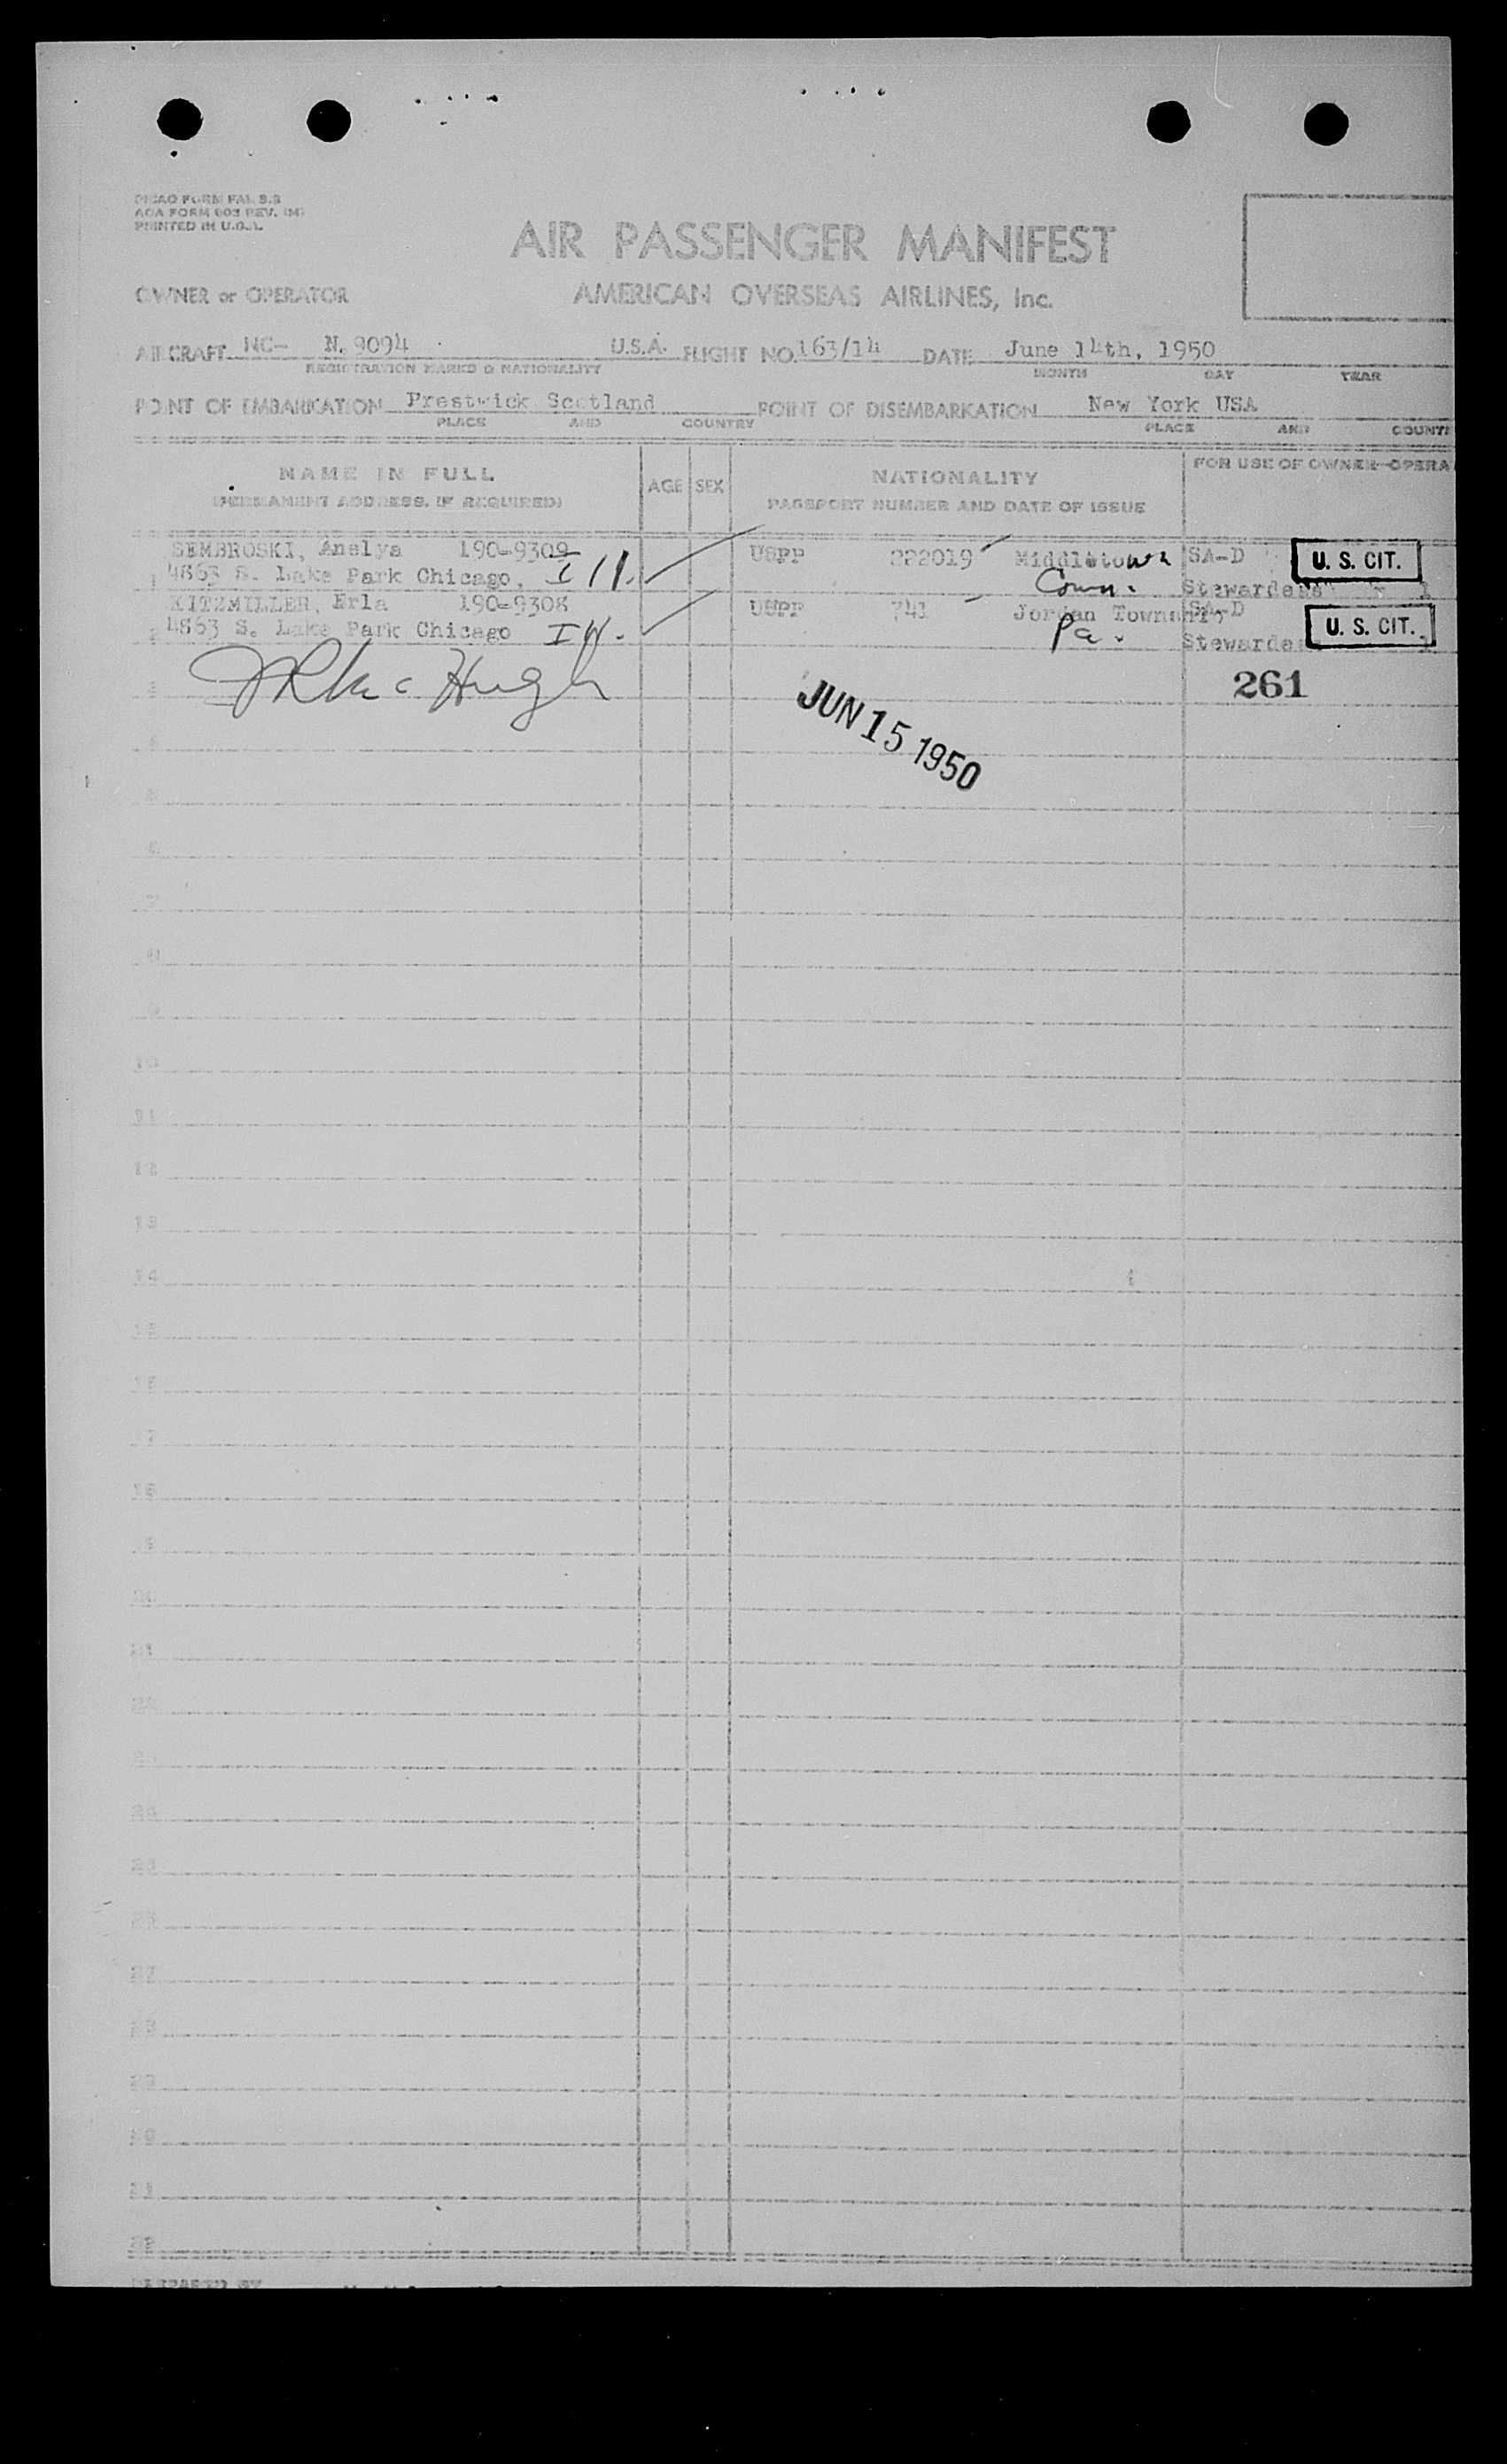 PICAO FORM FAL 3.3
AOA FORM 603 REV. (M)
PRINTED IN U.S.A.
AIR PASSENGER MANIFEST
OWNER or OPERATOR AMERICAN OVERSEAS AIRLINES, Inc.
AIRCRAFT NC- N. 9094 U.S.A. FLIGHT NO. 163/14 DATE June 14th, 1950
REGISTRATION MARKS & NATIONALITY MONTH DAY YEAR
POINT OF EMBARKATION Prestwick Scotland POINT OF DISEMBARKATION New York USA
PLACE AND COUNTRY PLACE AND COUNT
NAME IN FULL AGE SEX NATIONALITY FOR USE OF OWNER-OPERA
(PERMANENT ADDRESS, IF REQUIRED) PASSPORT NUMBER AND DATE OF ISSUE
SEMBROSKI, Anelya 190-9309 USPP 222019 Middletown SA-D U. S. CIT.
1 4863 S. Lake Park Chicago, Ill. Conn. Stewardess
KITZMILLER, Erla 190-9308 USPP 741 Jordan Township SA-D U. S. CIT.
2 4863 S. Lake Park Chicago Ill. Pa. Stewardess
3 261
JUN 15 1950
4
5
6
7
8
9
10
11
12
13
14
15
16
17
18
19
20
21
22
23
24
25
26
27
28
29
30
31
32